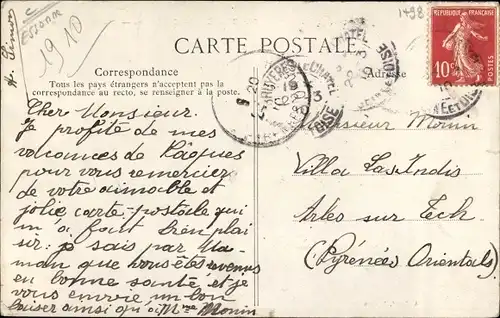 1498
Essonne
1910
CARTE POSTALE
Correspondance
Tous les pays étrangers n'acceptent pas la
correspondance au recto, se renseigner à la poste.
Adresse
RÉPUBLIQUE FRANÇAISE
10
POSTES
Cher Monsieur.
Je profite de mes
vacances de Pâques
pour vous remercier
de votre aimable et
jolie carte-postale qui
m'a fait bien plai
sir: je sais par Ma-
man que vous êtes revenus
en bonne santé et je
vous envoie un bon
baiser ainsi qu'à Mme Monin
Monsieur Monin
Villa Las Indis
Arles sur Tech
(Pyrénées Orientales)
OISE